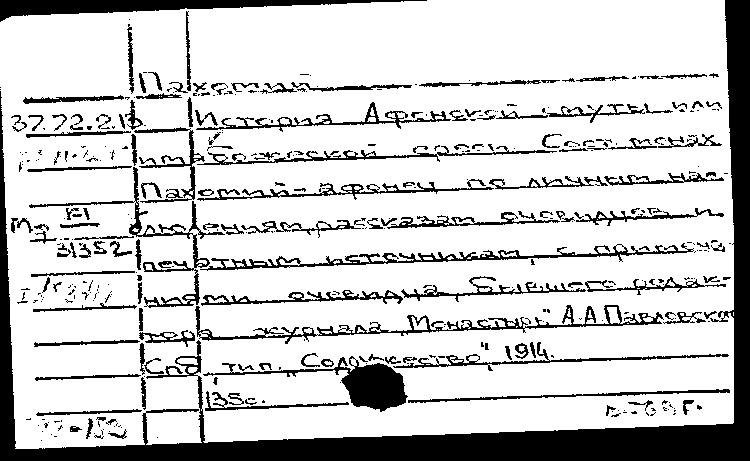 Пахомий
37.72.2.13
История Афонской смуты или
имябожеской ереси. Сост. монах
Пахомий-афонец по личным наб-
людениям, рассказам очевидцев и
Мф FI
31352
печатным источникам, с примеча-
ниями очевидца, бывшего редак-
тора журнала „Монастырь" А.А.Павловско
Спб, тип. „Содружество", 1914.
135с.